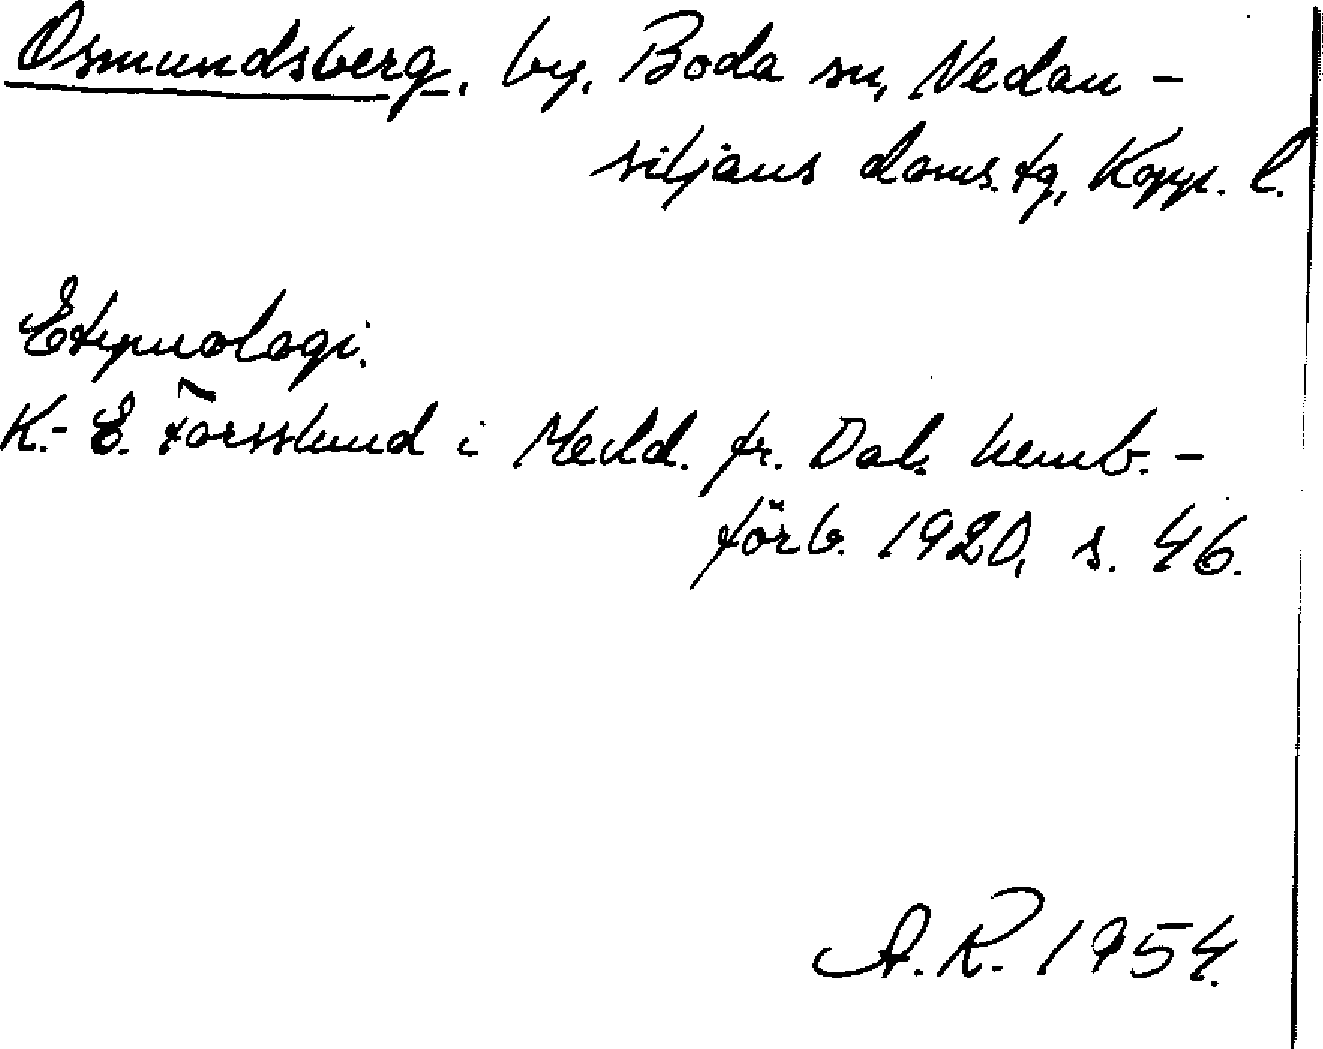 Osmundsberg, by, Boda sn, Nedan-
siljans doms. tg, Kopp. l.
Etymologi.
K.-E. Forsslund i Medd. fr. Dal. hemb.-
förb. 1920, s. 46.
A.R. 1954.